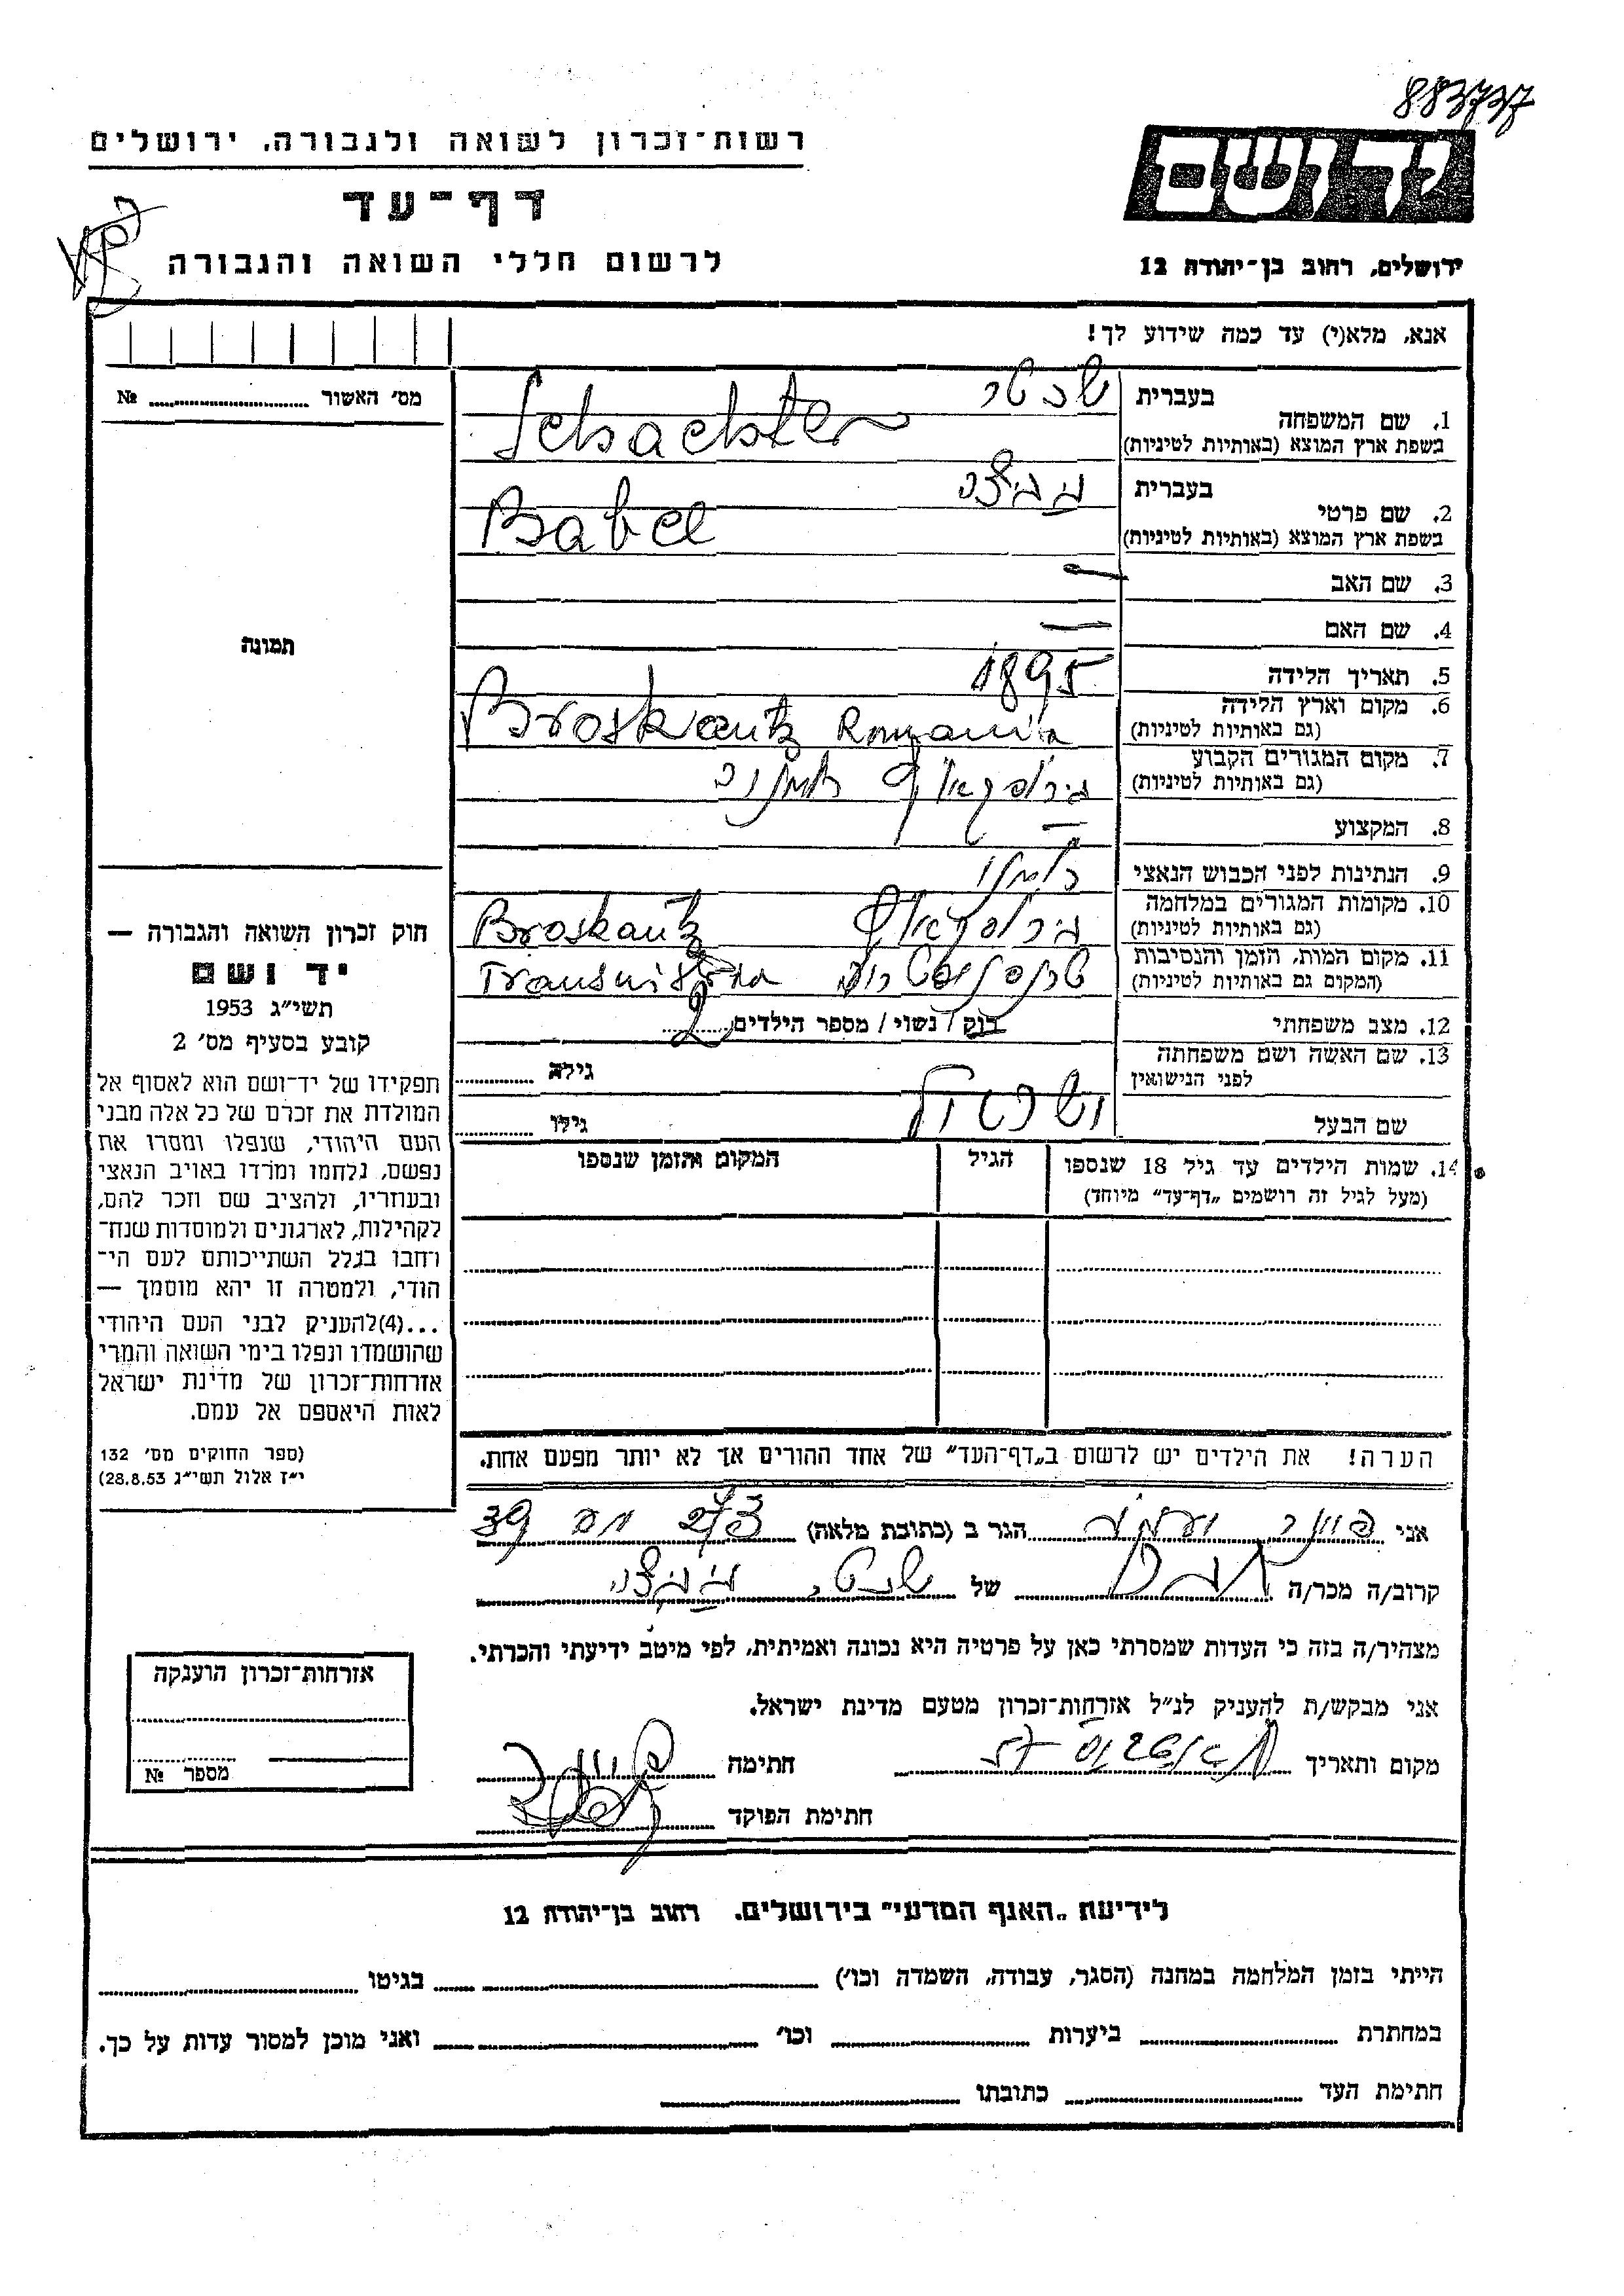 883737
רשות-זכרון לשואה ולגבורה, ירושלים
יד ושם
דף-עד
לרשום חללי השואה והגבורה
ירושלים, רחוב בן-יהודה 12
אנא, מלא(י) עד כמה שידוע לך!
מס' האשור № ....
1. שם המשפחה בעברית
בשפת ארץ המוצא (באותיות לטיניות) Schachter
2. שם פרטי בעברית
בשפת ארץ המוצא (באותיות לטיניות) Babel
3. שם האב —
4. שם האם —
5. תאריך הלידה 1895
6. מקום וארץ הלידה
(גם באותיות לטיניות) Broskautz Romania
7. מקום המגורים הקבוע
(גם באותיות לטיניות)
8. המקצוע —
9. הנתינות לפני הכבוש הנאצי
10. מקומות המגורים במלחמה
(גם באותיות לטיניות) Broskautz
11. מקום המות, הזמן והנסיבות
(המקום גם באותיות לטיניות) טרנסניסטריה
12. מצב משפחתי רוק / נשוי / מספר הילדים 2
13. שם האשה ושם משפחתה
לפני הנישואין גילה
שם הבעל גילו
14. שמות הילדים עד גיל 18 שנספו הגיל המקום והזמן שנספו
(מעל לגיל זה רושמים „דף-עד" מיוחד)
הערה! את הילדים יש לרשום ב„דף-העד" של אחד ההורים אך לא יותר מפעם אחת.
תמונה
חוק זכרון השואה והגבורה —
יד ושם
תשי"ג 1953
קובע בסעיף מס' 2
תפקידו של יד-ושם הוא לאסוף אל
המולדת את זכרם של כל אלה מבני
העם היהודי, שנפלו ומסרו את
נפשם, נלחמו ומרדו באויב הנאצי
ובעוזריו, ולהציב שם וזכר להם,
לקהילות, לארגונים ולמוסדות שנח-
רחבו בגלל השתייכותם לעם הי-
הודי, ולמטרה זו יהא מוסמך —
...(4)להעניק לבני העם היהודי
שהושמדו ונפלו בימי השואה והמרי
אזרחות-זכרון של מדינת ישראל
לאות היאספם אל עמם.
(ספר החוקים מס' 132
י"ז אלול תשי"ג 28.8.53)
אני הגר ב (כתובת מלאה) 39
קרוב/ה מכר/ה של
מצהיר/ה בזה כי העדות שמסרתי כאן על פרטיה היא נכונה ואמיתית, לפי מיטב ידיעתי והכרתי.
אני מבקש/ת להעניק לנ"ל אזרחות-זכרון מטעם מדינת ישראל.
מקום ותאריך חתימה
חתימת הפוקד
אזרחות-זכרון הוענקה
מספר №
לידיעת „האגף המדעי" בירושלים, רחוב בן-יהודה 12
הייתי בזמן המלחמה במחנה (הסגר, עבודה, השמדה וכו') בגיטו
במחתרת ביערות וכו' ואני מוכן למסור עדות על כך.
חתימת העד כתובתו